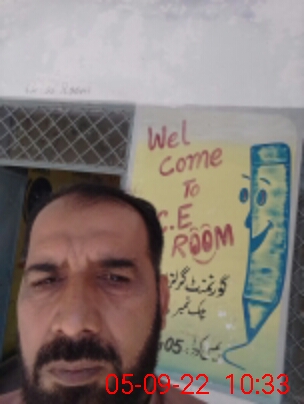 Wel
Come
To
C.E
ROOM
گورنمنٹ گرلز
چک نمبر
05
05-09-22 10:33